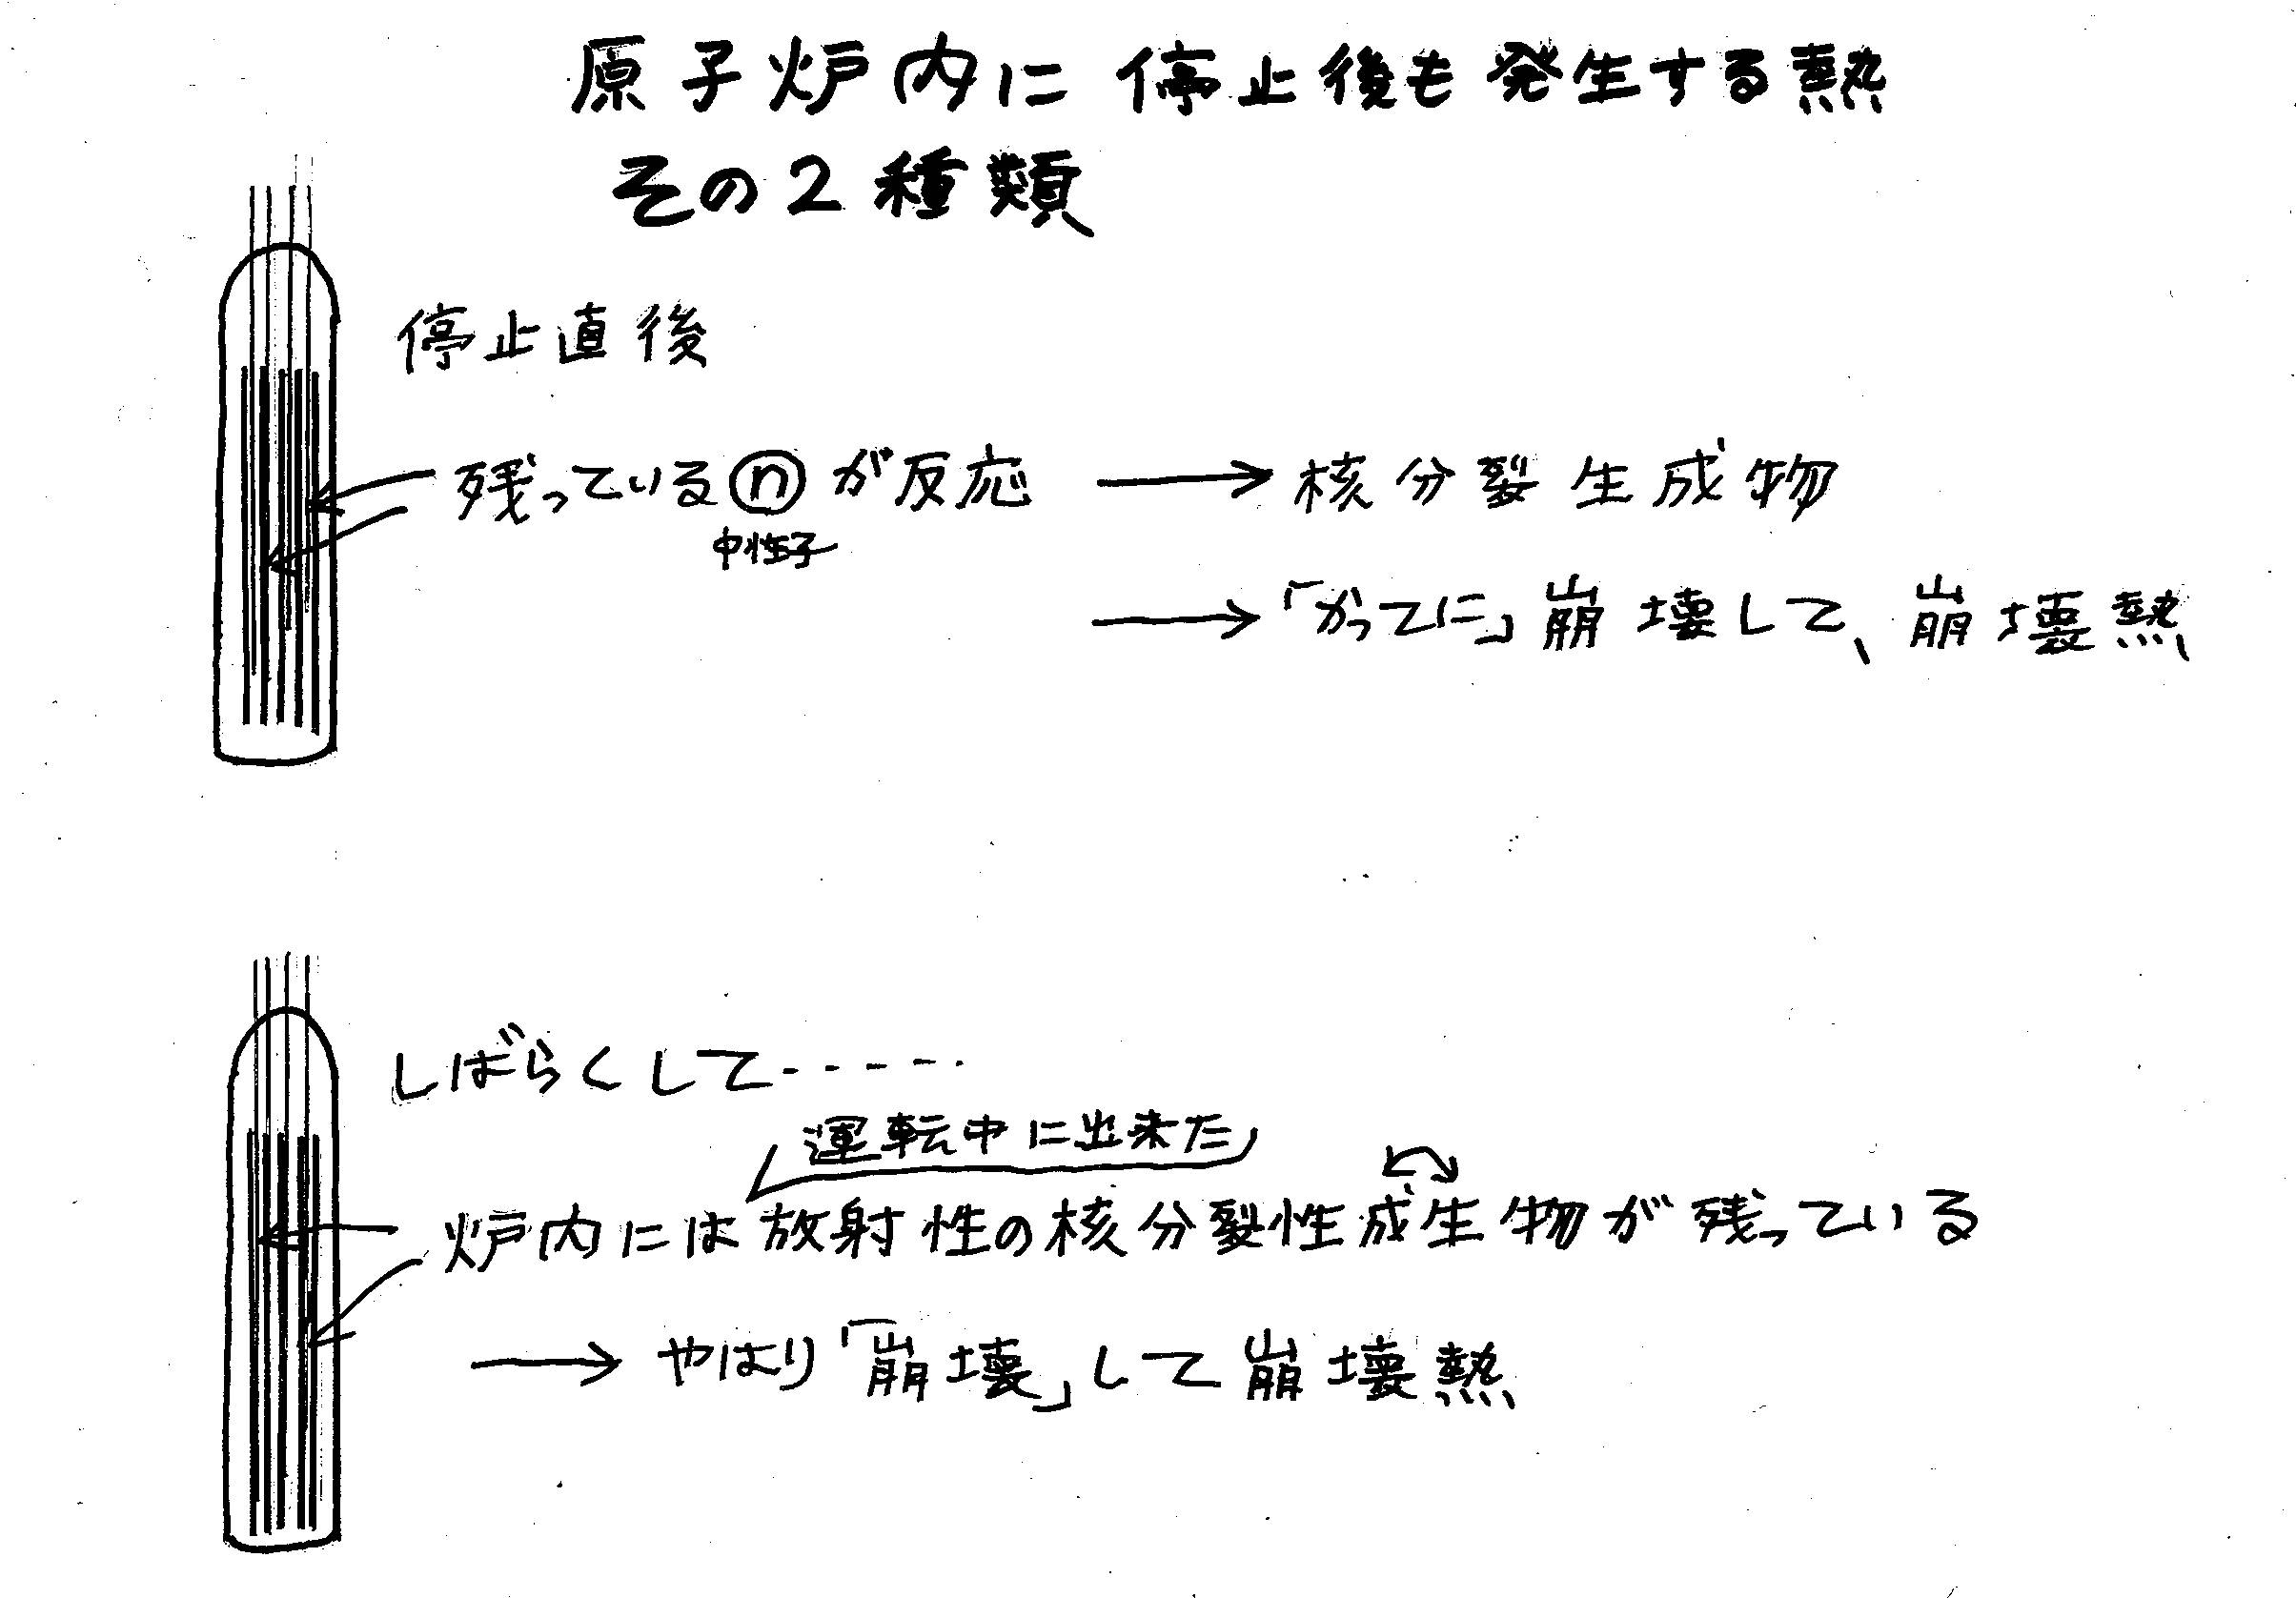 原子炉内に停止後も発生する熱
その2種類
停止直後
残っているnが反応 → 核分裂生成物
中性子
→「かってに」崩壊して、崩壊熱
しばらくして-----
運転中に出来た
炉内には放射性の核分裂性成生物が残っている
→ やはり「崩壊」して崩壊熱